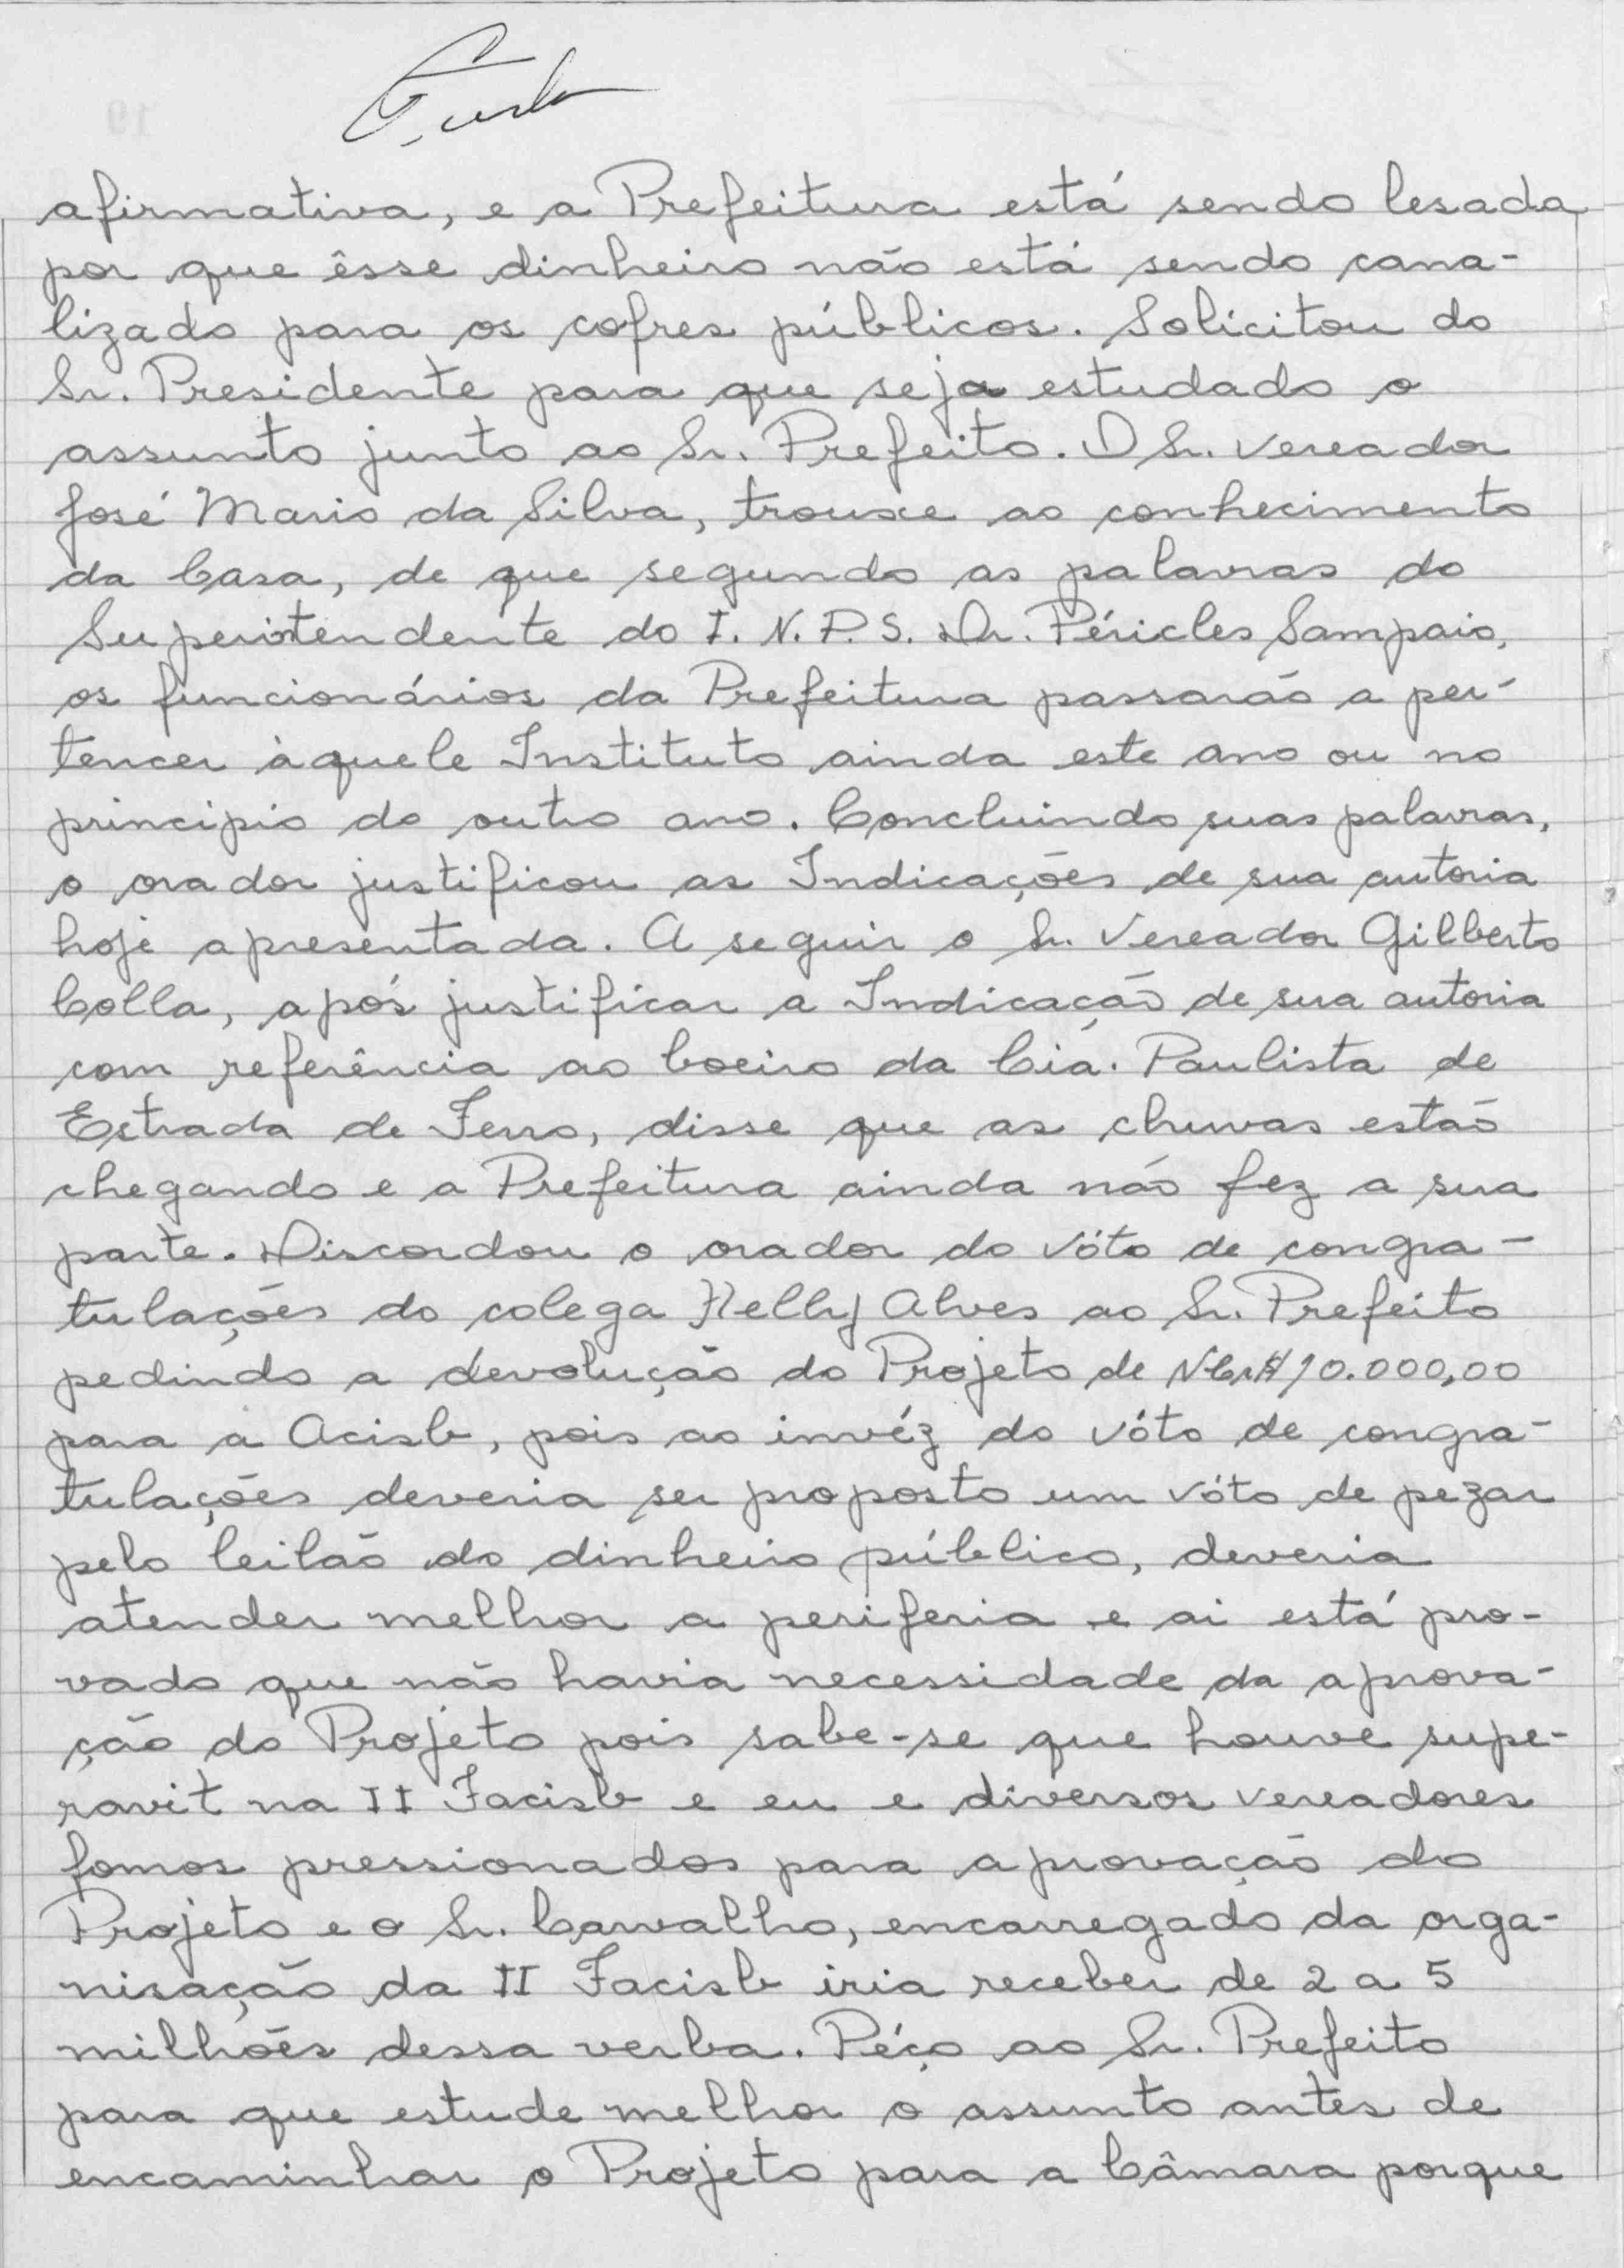 afirmativa, e a Prefeitura está sendo lesada
por que êsse dinheiro não está sendo cana-
lizado para os cofres públicos. Solicitou do
Sr. Presidente para que seja estudado o
assunto junto ao Sr. Prefeito. O Sr. Vereador
José Mario da Silva, trouxe ao conhecimento
da Casa, de que segundo as palavras do
Superintendente do I.N.P.S. Dr. Péricles Sampaio,
os funcionários da Prefeitura passarão a per-
tencer àquele Instituto ainda este ano ou no
principio do outro ano. Concluindo suas palavras,
o orador justificou as Indicações de sua autoria
hoje apresentada. A seguir o Sr. Vereador Gilberto
Colla, após justificar a Indicação de sua autoria
com referência ao boeiro da Cia. Paulista de
Estrada de Ferro, disse que as chuvas estão
chegando e a Prefeitura ainda não fez a sua
parte. Discordou o orador do vóto de congra-
tulações do colega Helly Alves ao Sr. Prefeito
pedindo a devolução do Projeto de NCr$ 10.000,00
para a Acisb, pois ao invéz do vóto de congra-
tulações deveria ser proposto um vóto de pezar
pelo leilão do dinheiro público, deveria
atender melhor a periferia e ai está pro-
vado que não havia necessidade da aprova-
ção do Projeto pois sabe-se que houve supe-
ravit na II Facisb e eu e diversos vereadores
fomos pressionados para aprovação do
Projeto e o Sr. Carvalho, encarregado da orga-
nisação da II Facisb iria receber de 2 a 5
milhões dessa verba. Péço ao Sr. Prefeito
para que estude melhor o assunto antes de
encaminhar o Projeto para a Câmara porque